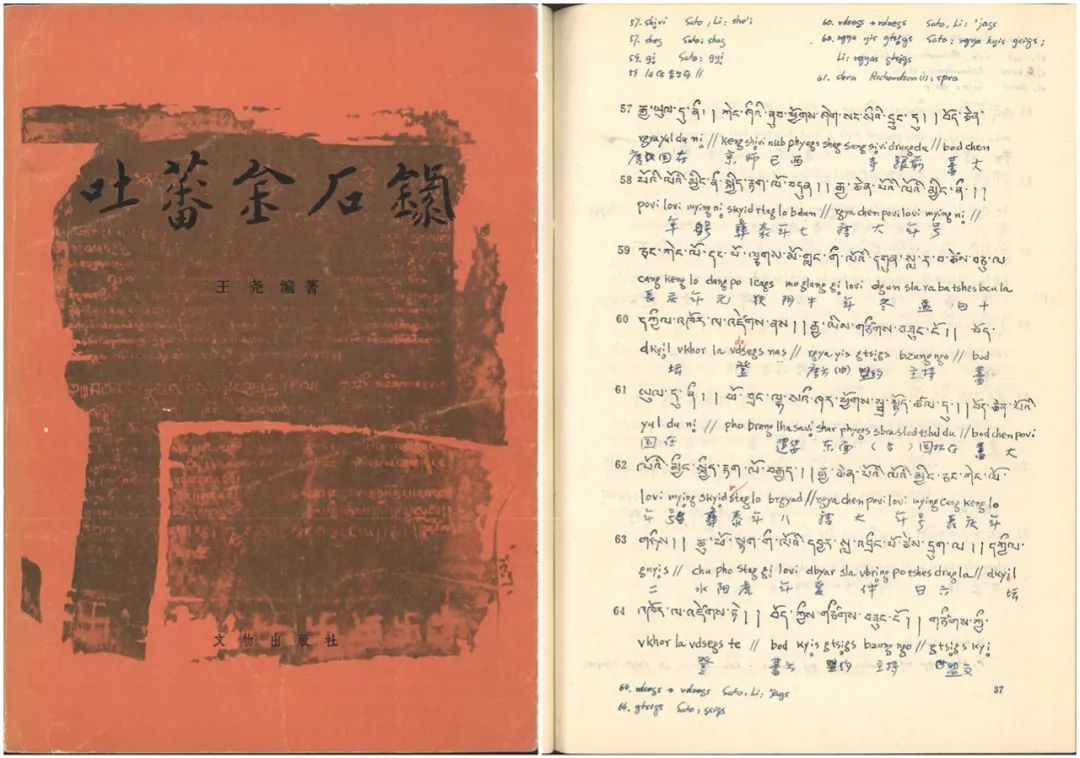 吐蕃金石錄
王尧编著
文物出版社
57. shivi Sato, Li: she'i
57. sheg Sato: shag
59. gi Sato: gyi
60. rdsegs → vdsegs Sato, Li: 'jags
60. rgya yis gtsigs Sato: rgya kyis gcigs;
Li: rgyas gtsigs
61. sbra Richardson(1): spra
57 རྒྱ་ཡུལ་དུ་ནི།། ཀེང་ཤིའི་ནུབ་ཕྱོགས་ཤེག་སང་སིའི་དྲུང་དུ།། བོད་ཆེན་
rgya yul du ni // keng shivi nub phyogs sheg sang sivi drung du // bod chen
唐国在 京师 西 寺 前 蕃 大
58 པོའི་ལོའི་མྱིང་ནི་སྐྱིད་རྟག་ལོ་བདུན།། རྒྱ་ཆེན་པོའི་ལོའི་མྱིང་ནི།།
povi lovi mying ni skyid rtag lo bdun // rgya chen povi lovi mying ni //
年 号 彝泰年七 唐 大 年号
59 ཅང་ཀེང་ལོ་དང་པོ་ལྕགས་མོ་གླང་གི་ལོའི་དགུན་སླ་ར་བ་ཚེས་བཅུ་ལ
cang keng lo dang po lcags mo glang gi lovi dgun sla ra ba tshes bcu la
長庆年元 铁阴牛 年 冬 孟 日十
60 དཀྱིལ་འཁོར་ལ་འཛེགས་ནས།། རྒྱ་ཡིས་གཙིགས་བཟུང་ངོ།། བོད་
dkyil vkhor la vdsegs nas // rgya yis gtsigs bzung ngo // bod
坛 登 唐 盟约 主持 蕃
61 ཡུལ་དུ་ནི།། ཕོ་བྲང་ལྷ་སའི་ཤར་ཕྱོགས་སྦྲ་སྟོད་ཚལ་དུ།། བོད་ཆེན་པོའི་
yul du ni // pho brang lha savi shar phyogs sbra stod tshal du // bod chen povi
国在 邏娑 东面 园 蕃 大
62 ལོའི་མྱིང་སྐྱིད་རྟག་ལོ་བརྒྱད།། རྒྱ་ཆེན་པོའི་ལོའི་མྱིང་ཅང་ཀེང་ལོ་
lovi mying skyid rtag lo brgyad // rgya chen povi lovi mying cang keng lo
年号 彝泰年八 唐 大 年号長庆年
63 གཉིས།། ཆུ་ཕོ་སྟག་གི་ལོའི་དབྱར་སླ་འབྲིང་པོ་ཚེས་དྲུག་ལ།། དཀྱིལ་
gnyis // chu pho stag gi lovi dbyar sla vbring po tshes drug la // dkyil
二 水阳虎 年 夏 仲 日六 坛
64 འཁོར་ལ་འཛེགས་ཏེ།། བོད་ཀྱིས་གཙིགས་བཟུང་ངོ།། གཙིགས་ཀྱི་
vkhor la vdsegs te // bod kyis gtsigs bzung ngo // gtsigs kyi
登 蕃 盟约 主持 盟文
60. rdsegs → vdsegs Sato, Li: 'jags
64. gtsigs Sato: gcigs
37